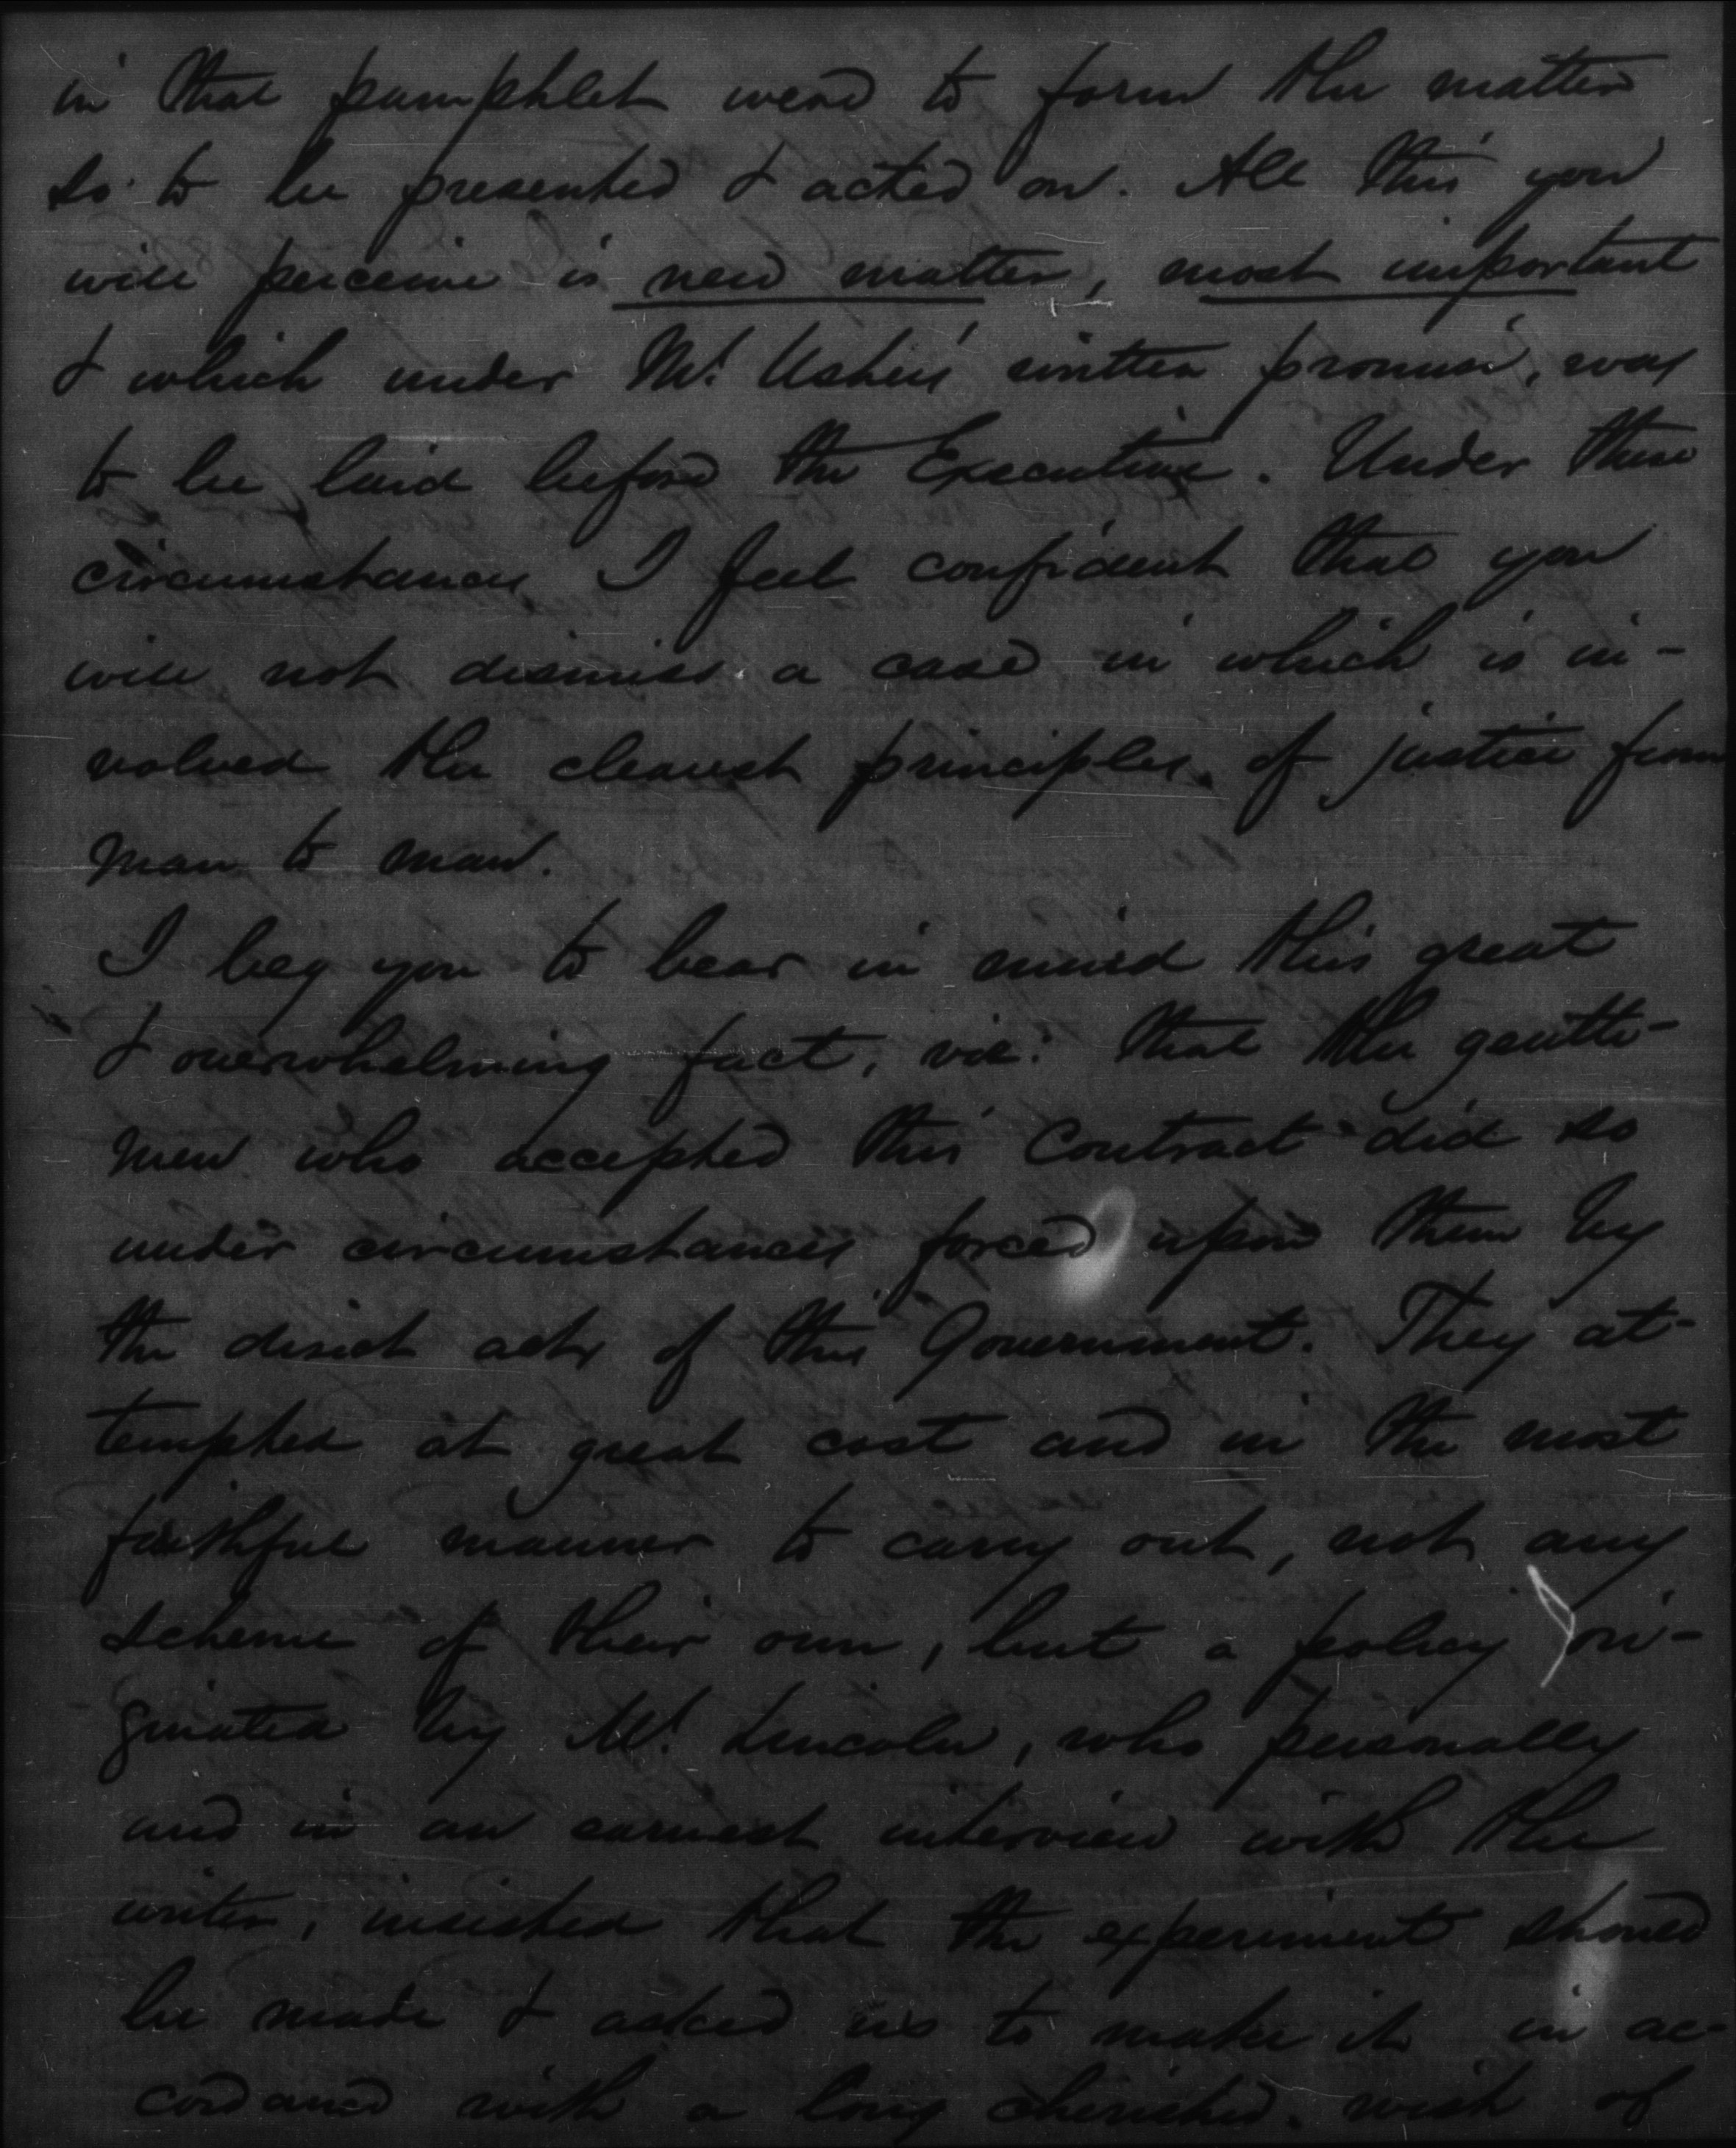 in that pamphlet were to form the matter
so to be presented & acted on. All this you
will perceive is new matter, most important
& which under Mr. Usher's written promise, was
to be laid before the Executive. Under these
circumstances I feel confident that you
will not dismiss a case in which is in-
volved the clearest principles of justice from
man to man.
I beg you to bear in mind this great
& overwhelming fact, viz: that the gentle-
men who accepted this Contract did so
under circumstances forced upon them by
the direct acts of this Government. They at-
tempted at great cost and in the most
faithful manner to carry out, not any
scheme of their own, but a policy ori-
ginated by Mr. Lincoln, who personally
and in an earnest interview with the
writer, insisted that the experiment should
be made & asked us to make it in ac-
cordance with a long cherished wish of